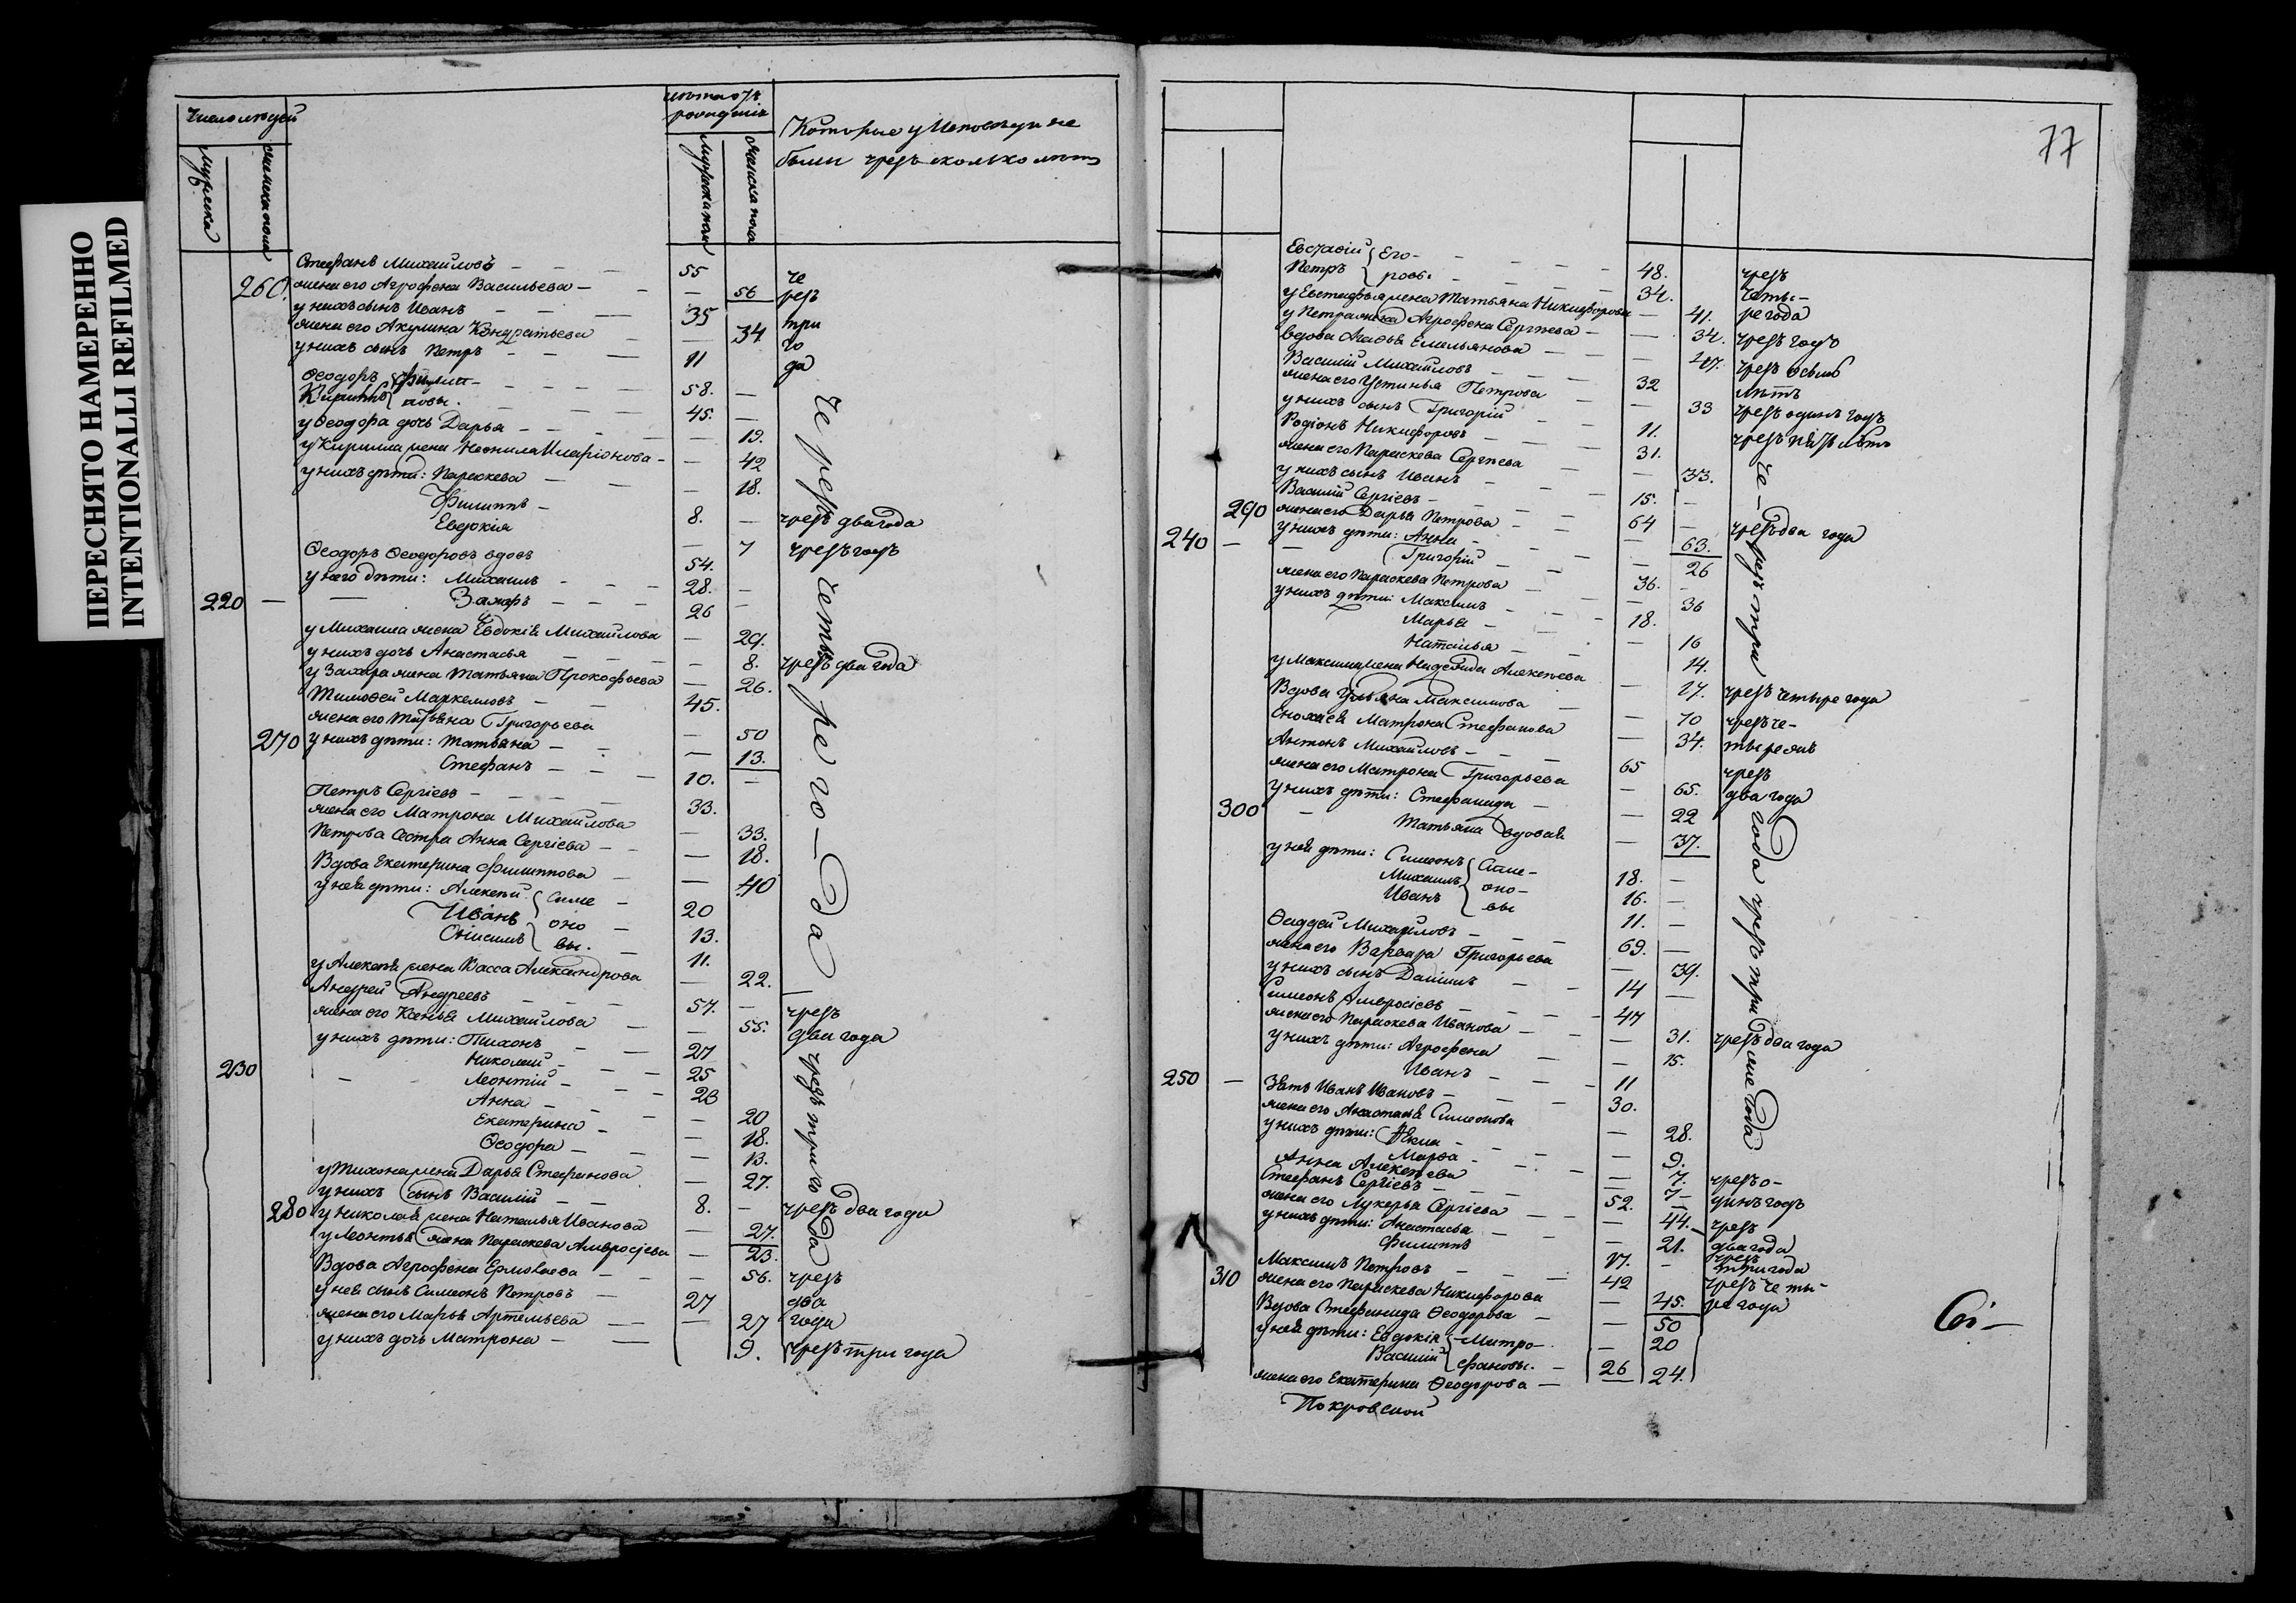 ПЕРЕСНЯТО НАМЕРЕННО
INTENTIONALLI REFILMED
Число людей
мужеска
женска пола
лѣта отъ рожденія
мужеска пола
женска пола
Которые у Исповѣди не
были чрезъ сколько лѣтъ
Стефанъ Михайловъ — 55
260. жена его Агрофена Васильева — 56
у нихъ сынъ Иванъ 35
жена его Акулина Кондратьева 34
у нихъ сынъ Петръ 11
че
резъ
три
го
да
Ѳеодоръ 58. —
Кириллъ 45. —
у Ѳеодора дочь Дарья — 19.
у Кирилла жена Неонила Иларіонова — 42
у нихъ дѣти: Параскева — 18.
Филиппъ — 8. — чрезъ два года
Евдокія — 7 чрезъ годъ
Ѳеодоръ Ѳеодоровъ вдовъ 54.
у него дѣти: Михаилъ 28. —
220 — Захаръ 26 —
у Михаила жена Евдокія Михайлова — 29.
у нихъ дочь Анастасья — 8. чрезъ два года
у Захара жена Татьяна Прокофьева — 26.
Тимоѳей Маркелловъ 45.
жена его Татьяна Григорьева — 50
270 у нихъ дѣти: Татьяна — 13.
Стефанъ 10. —
Петръ Сергіевъ — 33.
жена его Матрона Михайлова — 33.
Петрова сестра Анна Сергіева — 18.
Вдова Екатерина Филиппова — 40
у ней дѣти: Алексѣй Симе — 20
Иванъ оно — 13.
Онисимъ вы. 11.
у Алексѣя жена Васса Александрова — 22.
че резъ четы ре го – да
Андрей Андреевъ 57. — чрезъ
жена его Ксенья Михайлова — 55. два года
у нихъ дѣти: Тихонъ 27
Николай 25
230 — Леонтій 23
Анна — 20
Екатерина — 18.
Ѳеодора — 13.
у Тихона жена Дарья Стефанова — 27.
у нихъ сынъ Василій 8. — чрезъ два года
280 у Николая жена Наталья Иванова — 27.
у Леонтья жена Параскева Амвросіева — 23.
чрезъ три года
Вдова Агрофена Ермолаева — 56. чрезъ
у нея сынъ Симеонъ Петровъ 27 два
жена его Марья Артемьева — 27 года
у нихъ дочь Матрона — 9. чрезъ три года
77
Евстафій Его- 48. чрезъ
Петръ ровы. 34. четы-
у Евстафья жена Татьяна Никифорова — 41. ре года
у Петра жена Агрофена Сергѣева — 34. чрезъ годъ
вдова Агафья Емельянова — 47. чрезъ осьмь
Василій Михайловъ 32 лѣтъ
жена его Устинья Петрова — 33 чрезъ одинъ годъ
у нихъ сынъ Григорій 11. чрезъ пять лѣтъ
Родіонъ Никифоровъ 31.
жена его Параскева Сергѣева — 33.
у нихъ сынъ Иванъ 15. —
Василій Сергіевъ — 64 — чрезъ два года
290 жена его Дарья Петрова — 63.
240 — у нихъ дѣти: Анна — 26
Григорій 36.
жена его Параскева Петрова — 36
у нихъ дѣти: Максимъ 18.
Марья — 16
Наталья — 14.
у Максима жена Надежда Алексѣева — 17. чрезъ четыре года
Вдова Ульяна Максимова — 70 чрезъ че-
сноха ея Матрона Стефанова — 34. тыре
Антонъ Михайловъ 65 чрезъ
жена его Матрона Григорьева — 65. два года
у нихъ дѣти: Стефанида — 22
300 — Татьяна вдовая — 37.
у ней дѣти: Симеонъ Симе- 18. —
Михаилъ оно- 16. —
Иванъ вы 11. —
Ѳаддей Михайловъ 69. —
жена его Варвара Григорьева — 39.
у нихъ сынъ Даніилъ 14 —
Симеонъ Амвросіевъ 47
жена его Параскева Иванова — 31. чрезъ два года
у нихъ дѣти: Агрофена — 15.
250 — Иванъ 11
Зять Иванъ Ивановъ 30.
жена его Анастасья Симеонова — 28.
у нихъ дѣти: — 9.
Марѳа — 7. чрезъ о-
Анна Алексѣева — 7 — динъ годъ
че-резъ три года чрезъ три года
Стефанъ Сергіевъ 52. — чрезъ
жена его Лукерья Сергіева — 44. два года
у нихъ дѣти: Анастасья — 21. чрезъ
Филиппъ 17. — три года
Максимъ Петровъ 42 чрезъ четы-
310 жена его Параскева Никифорова — 45. ре года
Вдова Стефанида Ѳеодорова — 50
у ней дѣти: Евдокія Митро- — 20
Василій фановы. 26
жена его Екатерина Ѳеодорова — 24.
Покровской